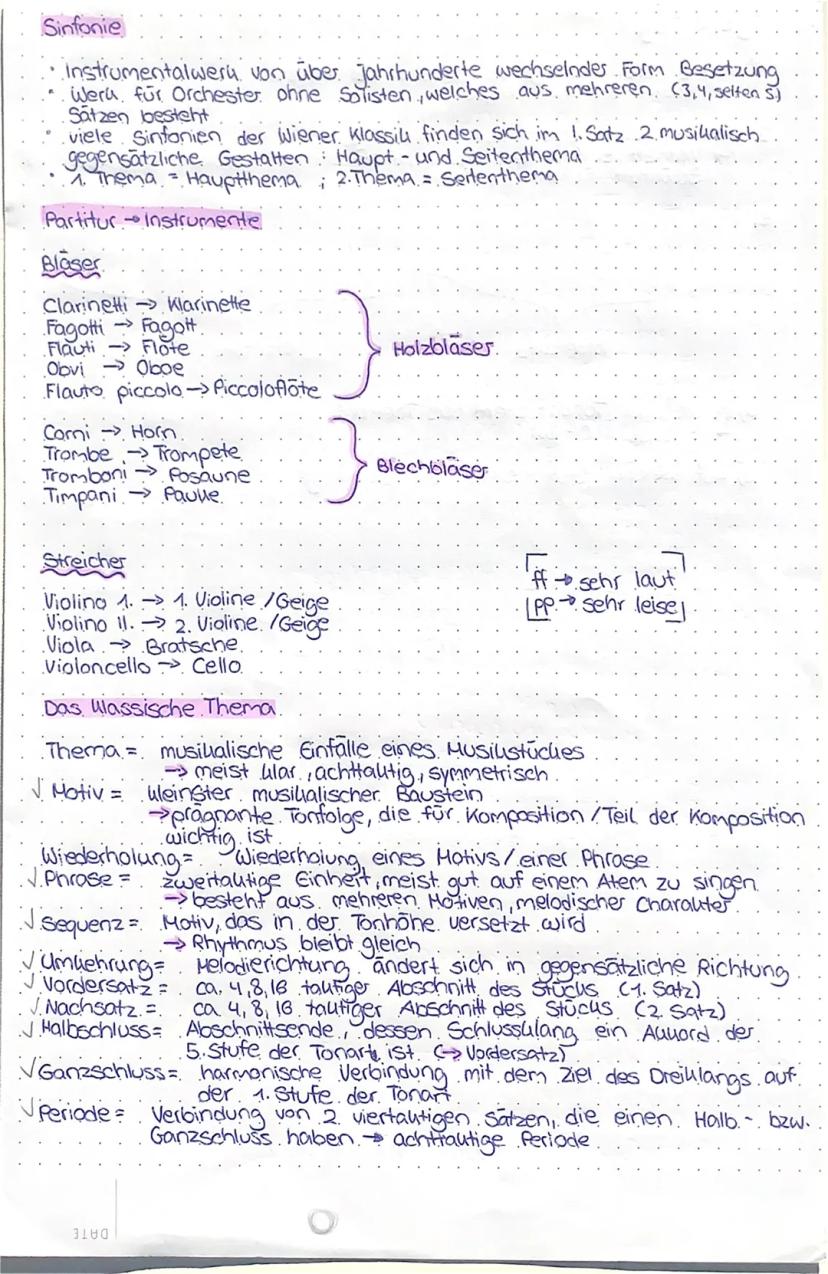 Sinfonie
• Instrumentalwerk von über Jahrhunderte wechselnder Form Besetzung
• Werk für Orchester ohne Solisten, welches aus mehreren (3,4, selten 5)
Sätzen besteht
• viele Sinfonien der Wiener Klassik finden sich im 1. Satz 2 musikalisch
gegensätzliche Gestalten : Haupt- und Seitenthema
• 1. Thema = Hauptthema ; 2. Thema = Seitenthema
Partitur → Instrumente
Bläser
Clarinetti → Klarinette
Fagotti → Fagott
Flauti → Flöte
Obvi → Oboe
Flauto piccolo → Piccoloflöte
Holzbläser
Corni → Horn
Trombe → Trompete
Tromboni → Posaune
Timpani → Pauke
Blechbläser
Streicher
Violino 1. → 1. Violine /Geige
Violino II. → 2. Violine /Geige
Viola → Bratsche
Violoncello → Cello
ff → sehr laut
pp → sehr leise
Das klassische Thema
Thema = musikalische Einfälle eines Musikstückes
→ meist klar, achttaktig, symmetrisch
✓ Motiv = kleinster musikalischer Baustein
→ prägnante Tonfolge, die für Komposition /Teil der Komposition
wichtig ist
Wiederholung = Wiederholung eines Motivs / einer Phrase
✓ Phrase = zweitaktige Einheit, meist gut auf einem Atem zu singen
→ besteht aus mehreren Motiven, melodischer Charakter
✓ Sequenz = Motiv, das in der Tonhöhe versetzt wird
→ Rhythmus bleibt gleich
✓ Umkehrung = Melodierichtung ändert sich in gegensätzliche Richtung
✓ Vordersatz = ca. 4, 8, 16 taktiger Abschnitt des Stücks (1. Satz)
✓ Nachsatz = ca 4, 8, 16 taktiger Abschnitt des Stücks (2 Satz)
✓ Halbschluss = Abschnittsende, dessen Schlussklang ein Akkord der
5. Stufe der Tonart ist (→ Vordersatz)
✓ Ganzschluss = harmonische Verbindung mit dem Ziel des Dreiklangs auf
der 1. Stufe der Tonart
✓ Periode = Verbindung von 2 viertaktigen Sätzen, die einen Halb- bzw.
Ganzschluss haben → achttaktige Periode
DATE